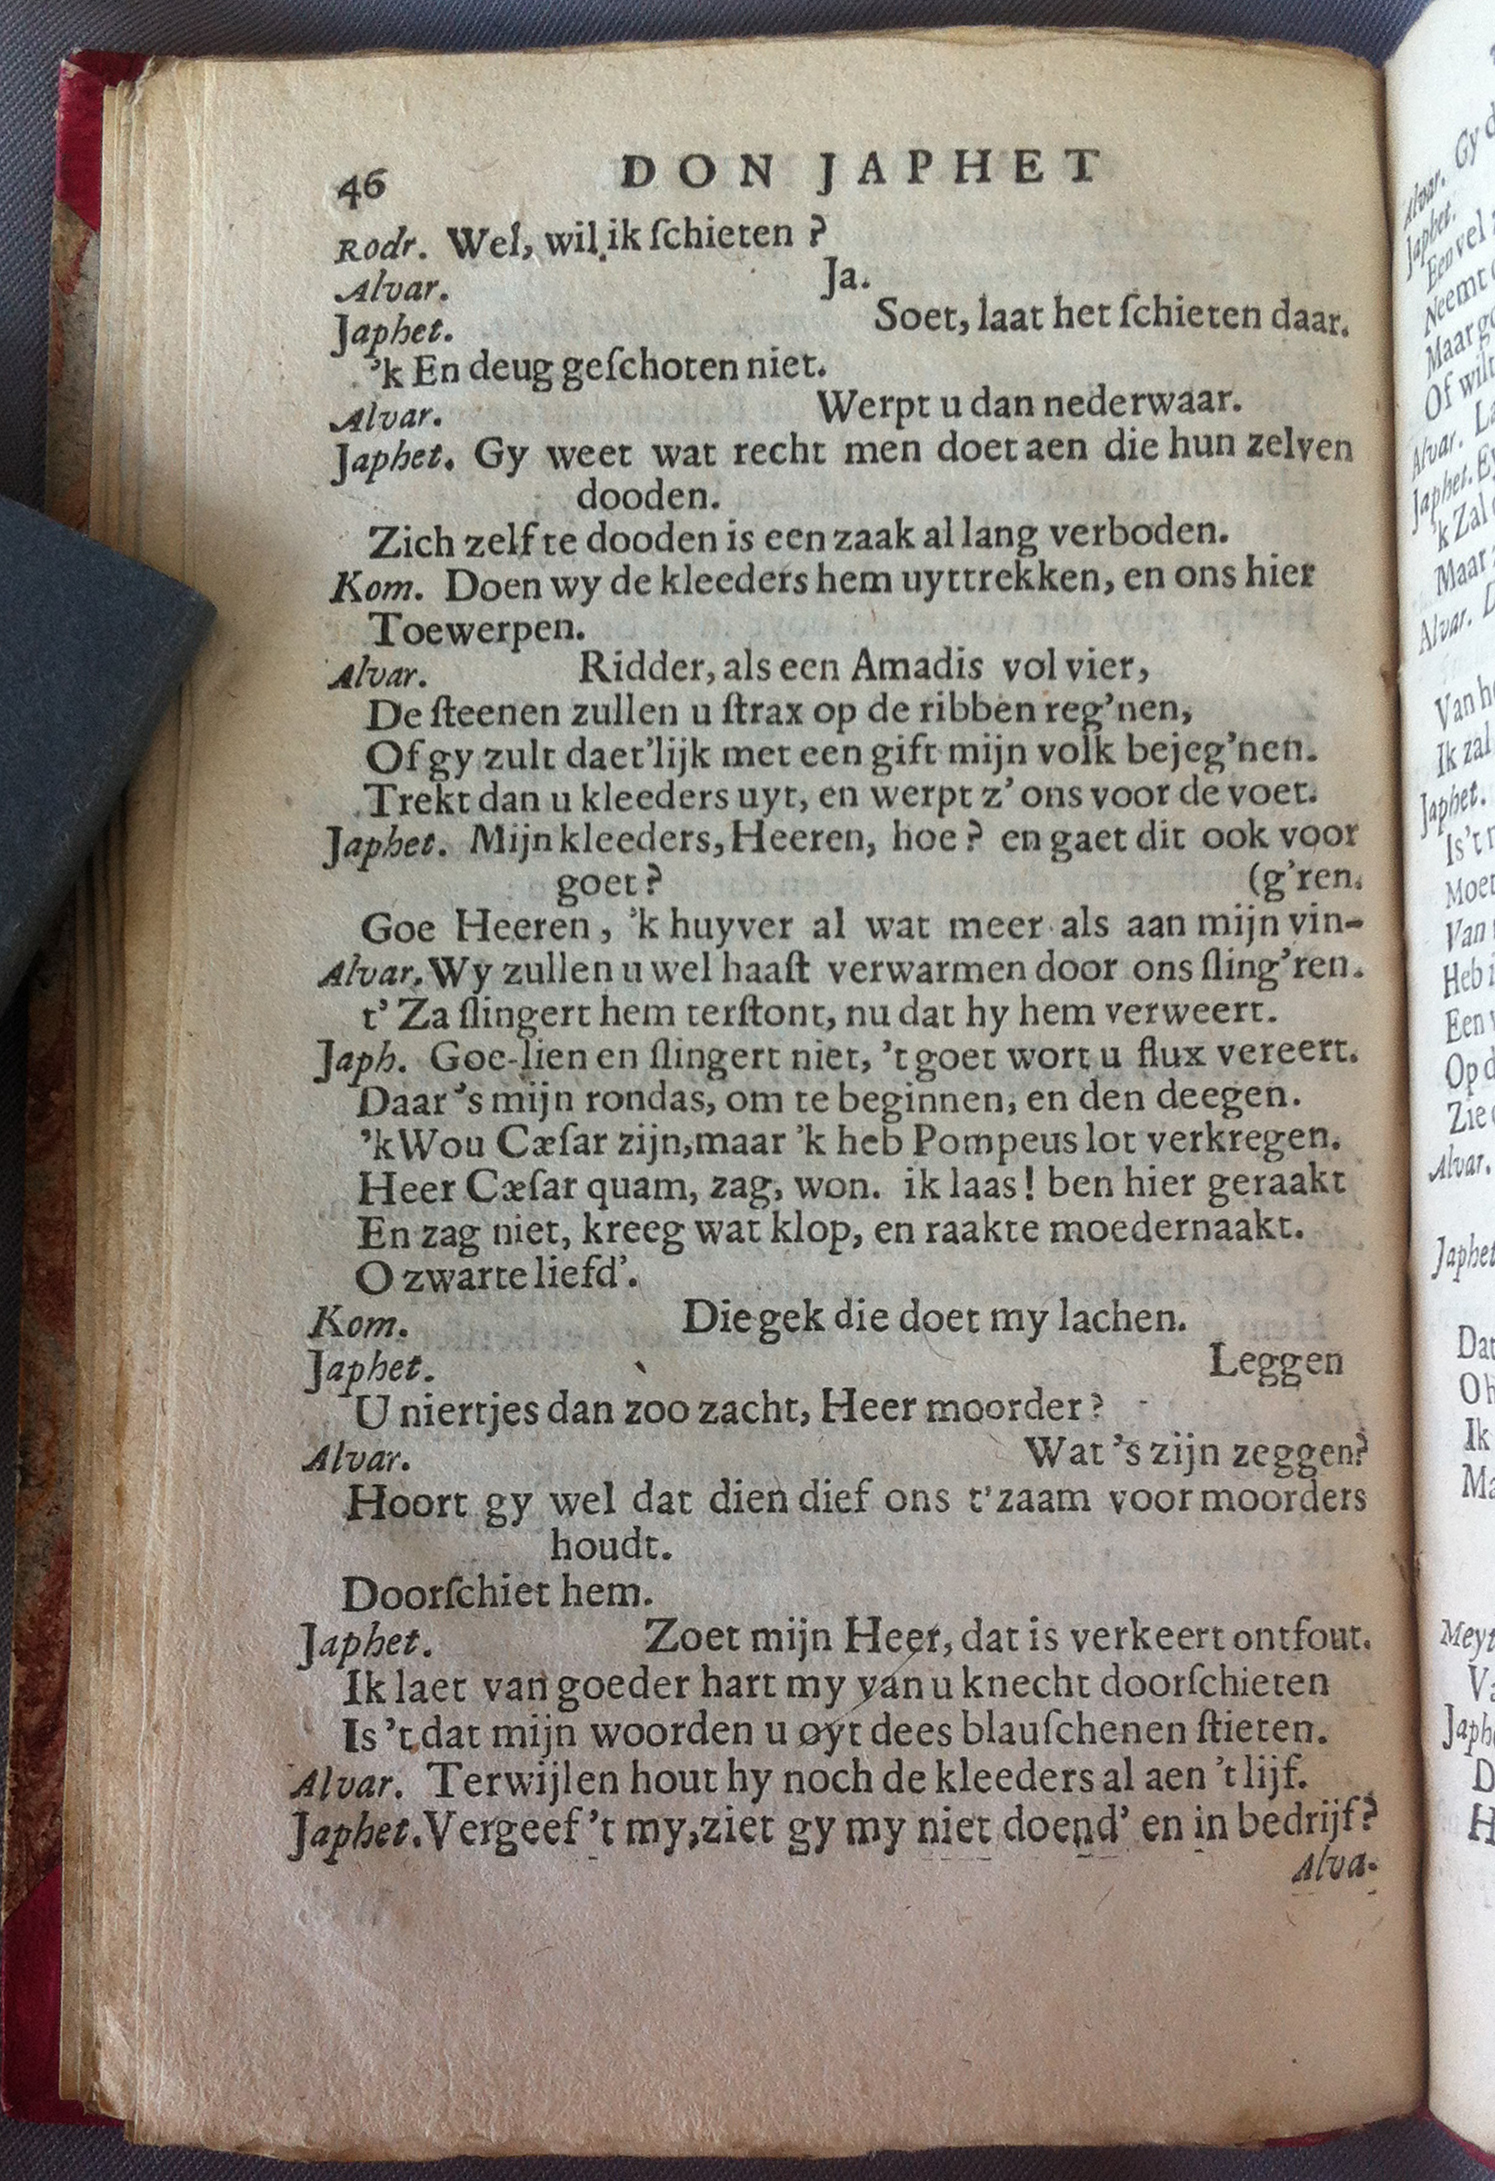 46 DON JAPHET
Rodr. Wel, wil ik ſchieten ?
Alvar. Ja.
Japhet. Soet, laat het ſchieten daar.
'k En deug geſchoten niet.
Alvar. Werpt u dan nederwaar.
Japhet. Gy weet wat recht men doet aen die hun zelven
dooden.
Zich zelf te dooden is een zaak al lang verboden.
Kom. Doen wy de kleeders hem uyttrekken, en ons hier
Toewerpen.
Alvar. Ridder, als een Amadis vol vier,
De ſteenen zullen u ſtrax op de ribben reg'nen,
Of gy zult daet'lijk met een gift mijn volk bejeg'nen.
Trekt dan u kleeders uyt, en werpt z' ons voor de voet.
Japhet. Mijn kleeders, Heeren, hoe? en gaet dit ook voor
goet? (g'ren.
Goe Heeren, 'k huyver al wat meer als aan mijn vin-
Alvar. Wy zullen u wel haaſt verwarmen door ons ſling'ren.
t' Za ſlingert hem terſtont, nu dat hy hem verweert.
Japh. Goe-lien en ſlingert niet, 't goet wort u flux vereert.
Daar 's mijn rondas, om te beginnen, en den deegen.
'k Wou Cæſar zijn, maar 'k heb Pompeus lot verkregen.
Heer Cæſar quam, zag, won. ik laas! ben hier geraakt
En zag niet, kreeg wat klop, en raakte moedernaakt.
O zwarte liefd'.
Kom. Die gek die doet my lachen.
Japhet. Leggen
U niertjes dan zoo zacht, Heer moorder?
Alvar. Wat 's zijn zeggen?
Hoort gy wel dat dien dief ons t'zaam voor moorders
houdt.
Doorſchiet hem.
Japhet. Zoet mijn Heer, dat is verkeert ontfout.
Ik laet van goeder hart my van u knecht doorſchieten
Is 't dat mijn woorden u oyt dees blauſchenen ſtieten.
Alvar. Terwijlen hout hy noch de kleeders al aen 't lijf.
Japhet. Vergeef 't my, ziet gy my niet doend' en in bedrijf?
Alva-
Alvar. Gy d
Japhet.
Een vel
Neemt
Maar go
Of wilt
Alvar. La
Japhet. Ey
'k Zal
Maar
Alvar. D
Van h
Ik zal
Japhet.
Is 't
Moet
Van
Heb i
Een
Op d
Zie
Alvar.
Japhet
Dat
O h
Ik
Ma
Meyt
Va
Japh
D
H